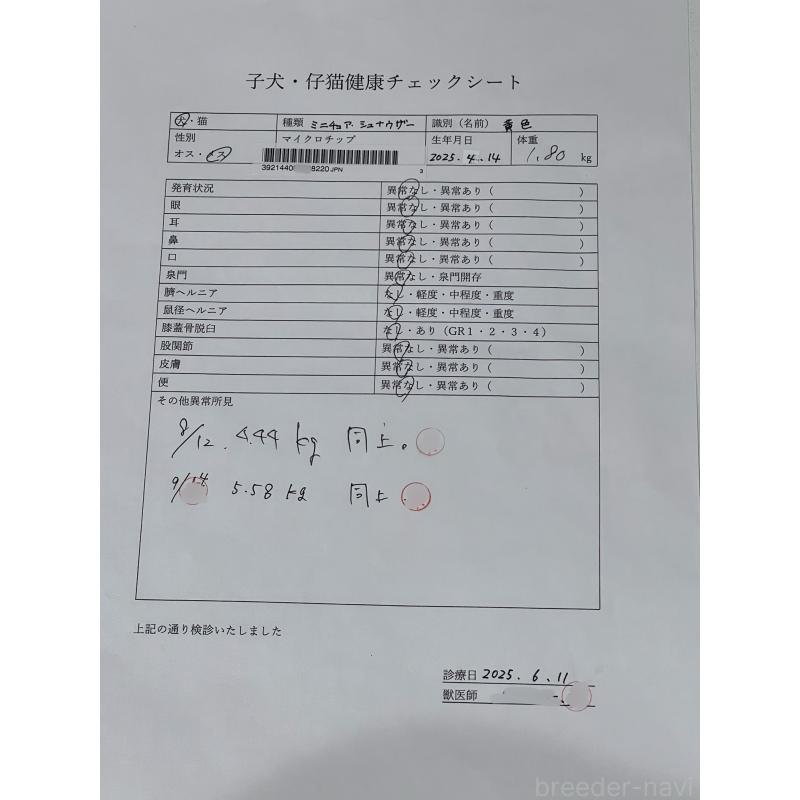 子犬・仔猫健康チェックシート
犬・猫 種類 ミニチュア・シュナウザー 識別（名前） 黄色
性別 マイクロチップ 生年月日 体重
オス・メス 2025.4.14 1.80 kg
3921440 8220 JPN 3
発育状況 異常なし・異常あり（ ）
眼 異常なし・異常あり（ ）
耳 異常なし・異常あり（ ）
鼻 異常なし・異常あり（ ）
口 異常なし・異常あり（ ）
泉門 異常なし・泉門開存
臍ヘルニア なし・軽度・中程度・重度
鼠径ヘルニア なし・軽度・中程度・重度
膝蓋骨脱臼 なし・あり（GR1・2・3・4）
股関節 異常なし・異常あり（ ）
皮膚 異常なし・異常あり（ ）
便 異常なし・異常あり（ ）
その他異常所見
8/12. 4.44 kg 同上。
9/14 5.58 kg 同上
上記の通り検診いたしました
診療日 2025.6.11
獣医師
breeder-navi